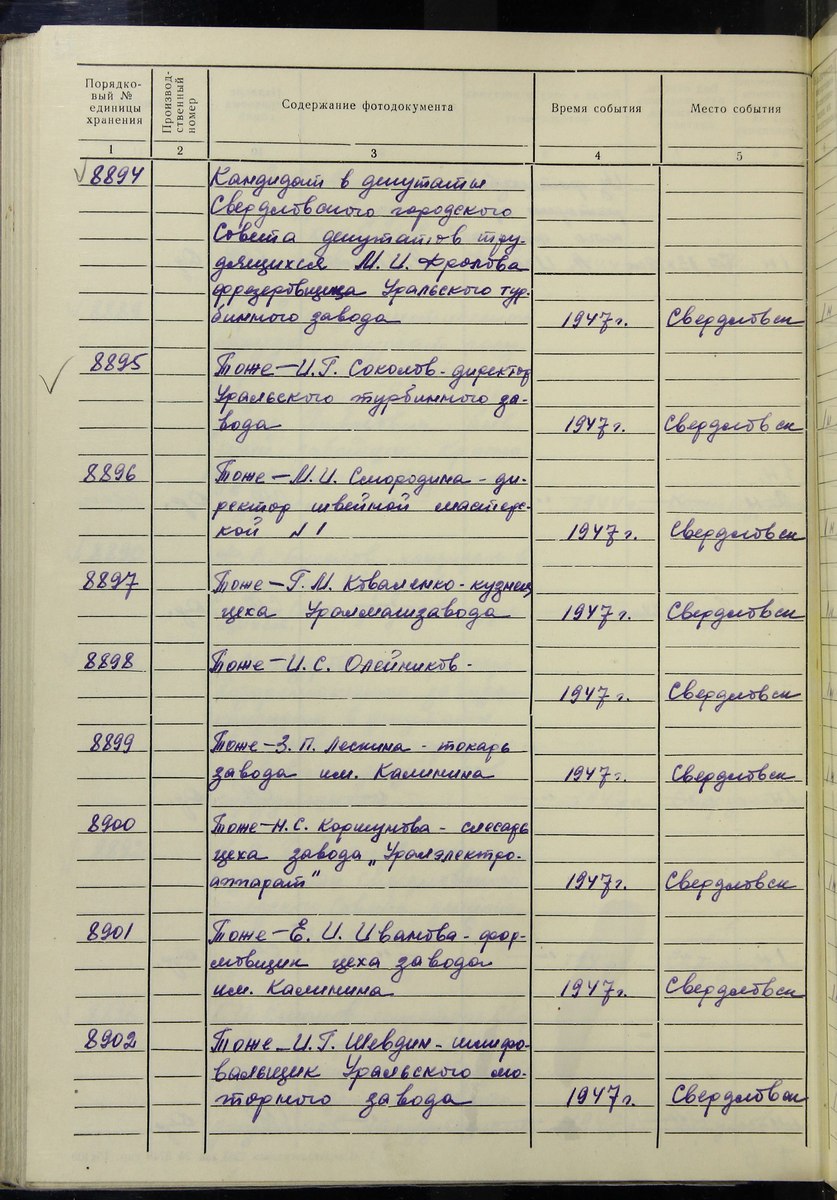 Порядко-
вый №
единицы
хранения
Производ-
ственный
номер
Содержание фотодокумента
Время события
Место события
1 2 3 4 5
8894 Кандидат в депутаты
Свердловского городского
Совета депутатов тру-
дящихся М. И. Фролова
фрезеровщица Уральского тур-
бинного завода 1947 г. Свердловск
8895 Тоже — И. Г. Соколов - директор
Уральского турбинного за-
вода 1947 г. Свердловск
8896 Тоже — М. И. Смородина - ди-
ректор швейной мастерс-
кой №1 1947 г. Свердловск
8897 Тоже — Г. М. Коваленко - кузнец
цеха Уралмашзавода 1947 г. Свердловск
8898 Тоже — И. С. Олейников -
1947 г. Свердловск
8899 Тоже — З. П. Лескина - токарь
завода им. Калинина 1947 г. Свердловск
8900 Тоже — Н. С. Коршунова - слесарь
цеха завода „Уралэлектро-
аппарат" 1947 г. Свердловск
8901 Тоже — Е. И. Иванова - фор-
мовщик цеха завода
им. Калинина 1947 г. Свердловск
8902 Тоже — И. Г. Шевдин - шлифо-
вальщик Уральского мо-
торного завода 1947 г. Свердловск